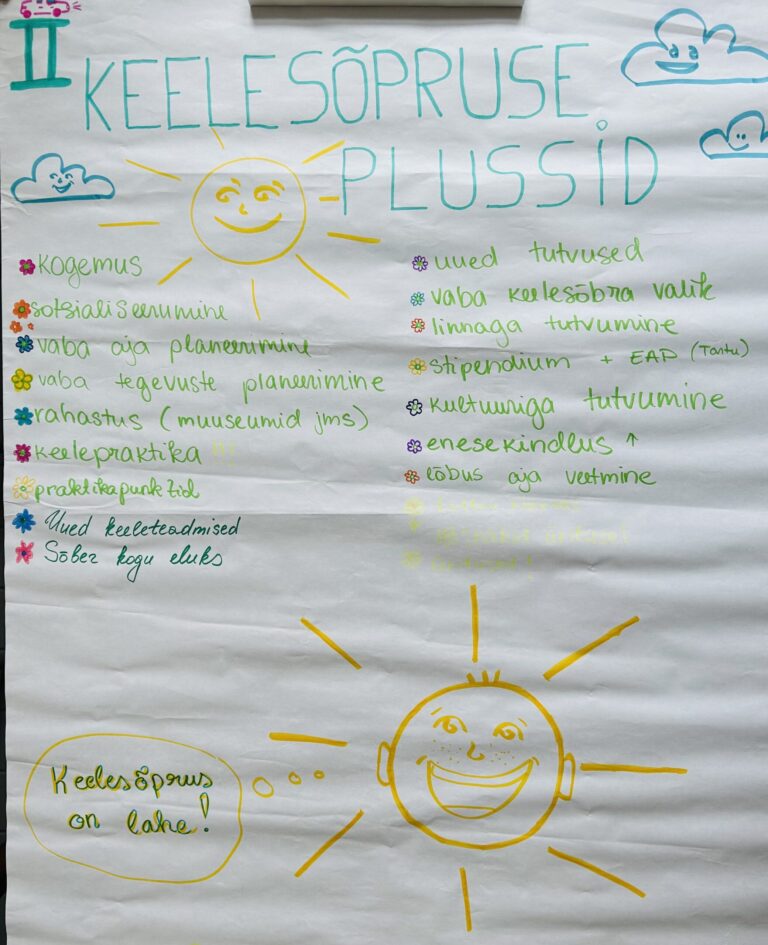 II KEELESÕPRUSE
PLUSSID
kogemus
sotsialiseerumine
vaba aja planeerimine
vaba tegevuste planeerimine
rahastus (muuseumid jms)
keelepraktika !!!
praktikapunktid
Uued keeleteadmised
Sõber kogu eluks
uued tutvused
vaba keelesõbra valik
linnaga tutvumine
stipendium + EAP (Tartu)
kultuuriga tutvumine
enesekindlus ↑
lõbus aja veetmine
Keelesõprus
on lahe!